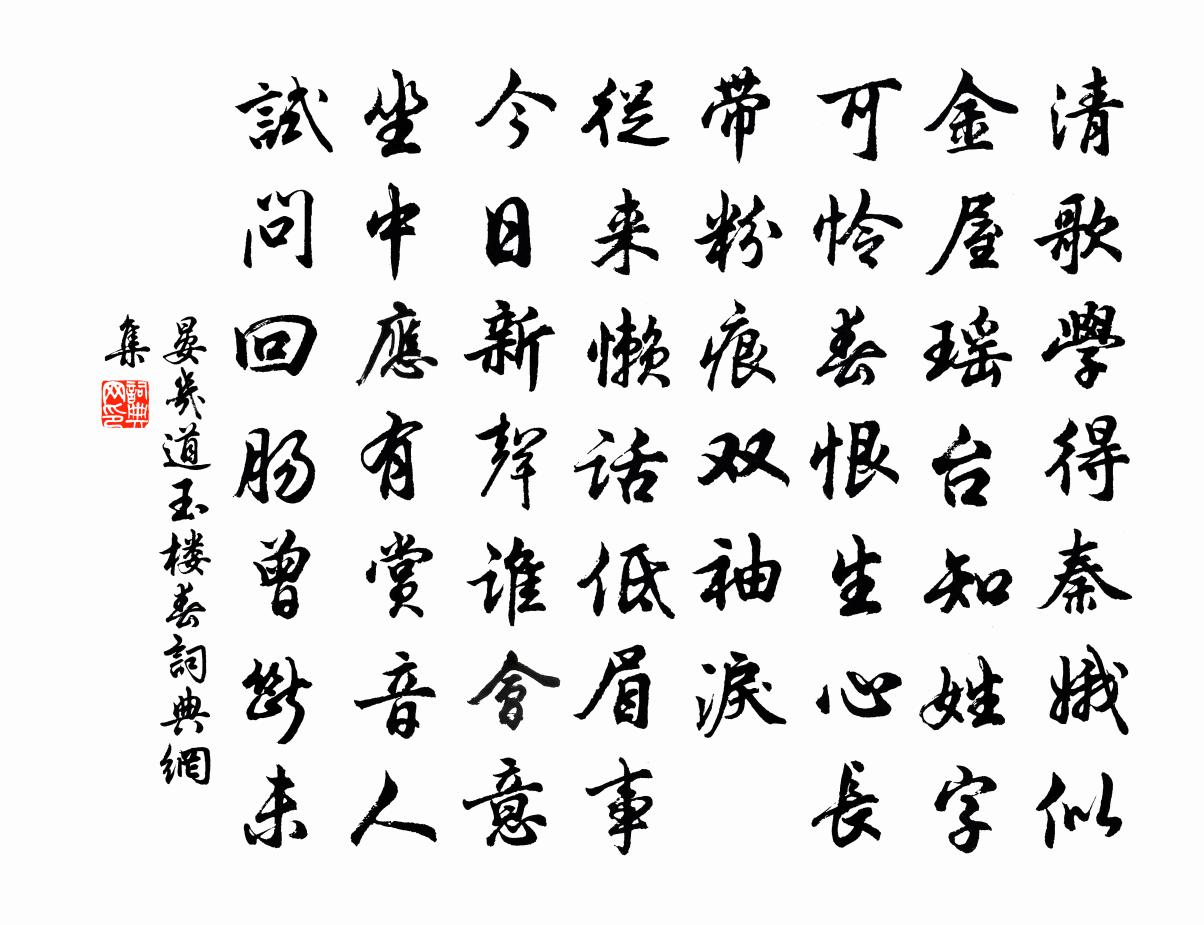 清歌學得秦娥似
金屋瑶台知姓字
可怜春恨生心長
带粉痕双袖淚
從来懒話低眉事
今日新聲誰會意
坐中應有赏音人
試問回肠曾斷未
晏幾道玉楼春詞典網
集
詞典网印